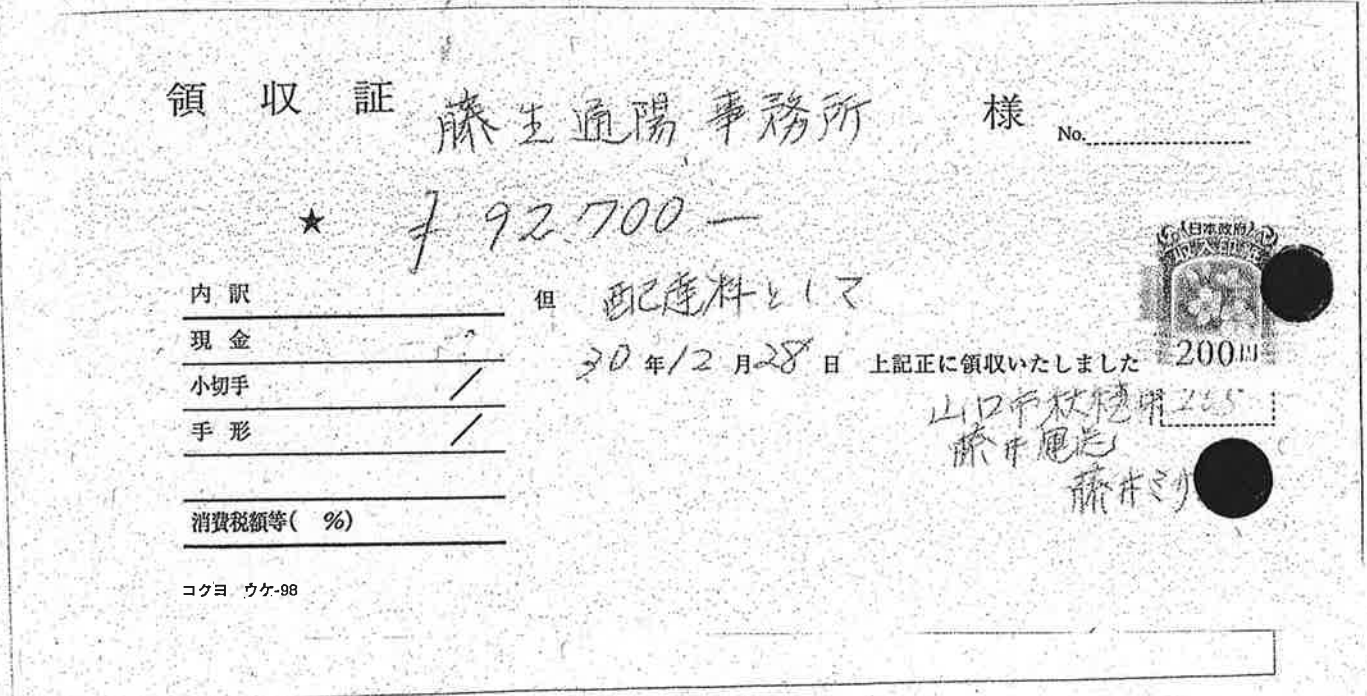 領収証 藤生通陽事務所 様 No.
★ ¥92.700-
内訳
但 配達料として
現金
30年12月28日 上記正に領収いたしました
小切手 /
手形 /
消費税額等( %)
日本政府
収入印紙
200円
山口市秋穂
藤井
藤井ミサ
コクヨ ウケ-98